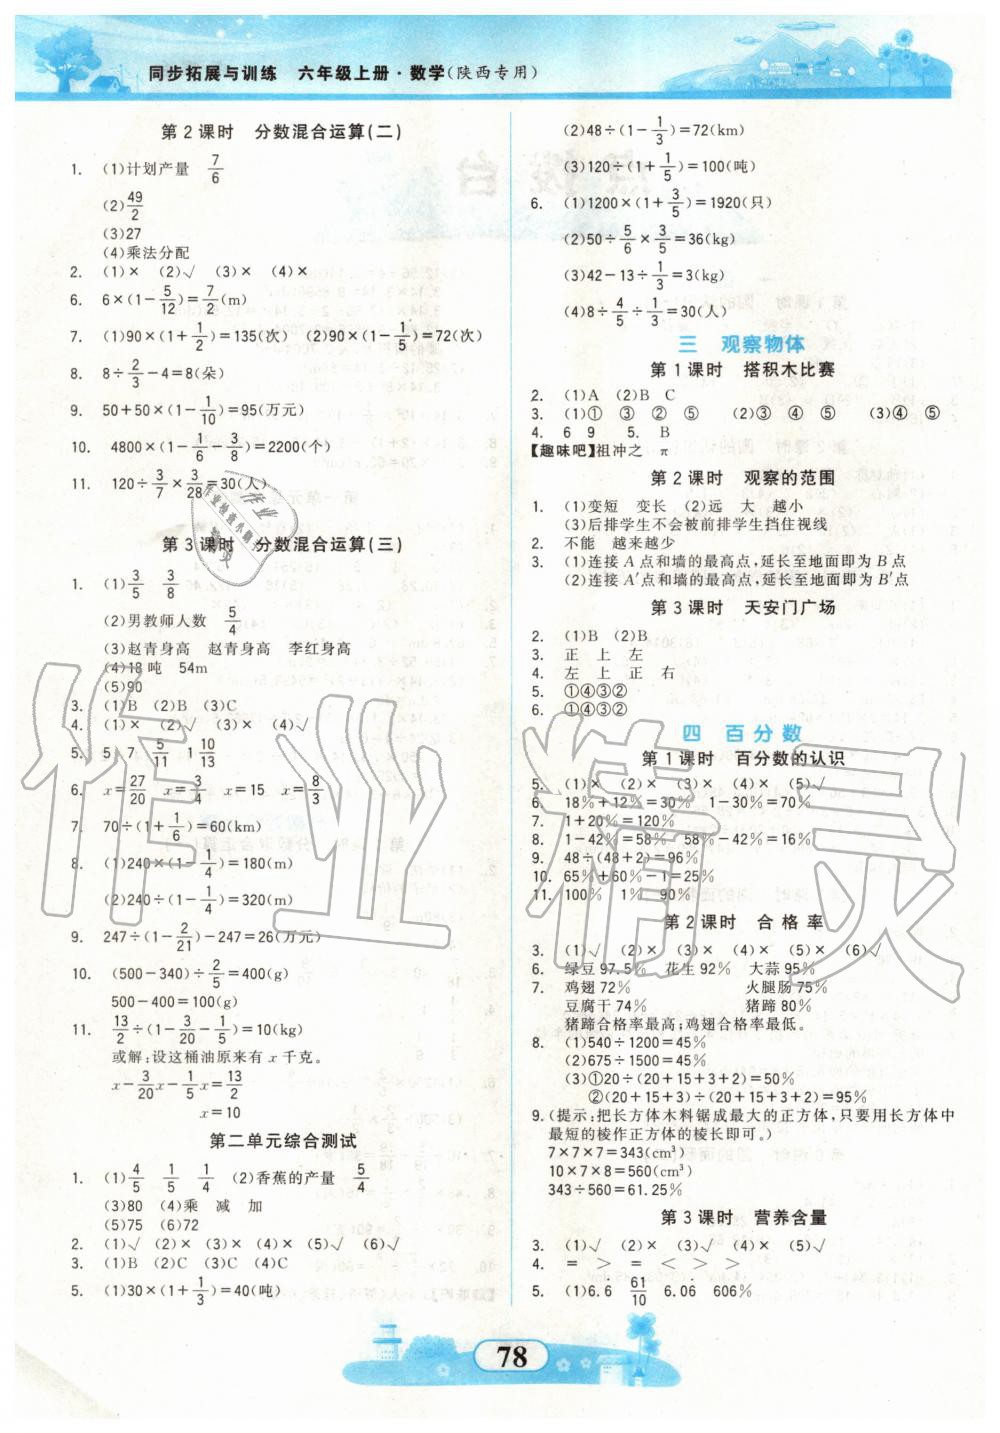 同步拓展与训练　六年级上册·数学(陕西专用)
第2课时　分数混合运算(二)
1. (1)计划产量　7/6
(2)49/2
(3)27
(4)乘法分配
2. (1)×　(2)√　(3)×　(4)×
6. 6×(1−5/12)=7/2(m)
7. (1)90×(1+1/2)=135(次)　(2)90×(1−1/5)=72(次)
8. 8÷2/3−4=8(朵)
9. 50+50×(1−1/10)=95(万元)
10. 4800×(1−1/6−3/8)=2200(个)
11. 120÷3/7×3/28=30(人)
第3课时　分数混合运算(三)
1. (1)3/5　3/8
(2)男教师人数　5/4
(3)赵青身高　赵青身高　李红身高
(4)18吨　54m
(5)90
3. (1)B　(2)B　(3)C
4. (1)×　(2)√　(3)×　(4)√
5. 5　7　5/11　1　10/13
6. x=27/20　x=3/4　x=15　x=8/3
7. 70÷(1+1/6)=60(km)
8. (1)240×(1−1/4)=180(m)
(2)240÷(1−1/4)=320(m)
9. 247÷(1−2/21)−247=26(万元)
10. (500−340)÷2/5=400(g)
500−400=100(g)
11. 13/2÷(1−3/20−1/5)=10(kg)
或解:设这桶油原来有x千克。
x−3/20x−1/5x=13/2
x=10
第二单元综合测试
1. (1)4/5　1/5　1/4　(2)香蕉的产量　5/4
(3)80　(4)乘　减　加
(5)75　(6)72
2. (1)√　(2)×　(3)×　(4)×　(5)√　(6)√
3. (1)B　(2)C　(3)C　(4)C
5. (1)30×(1+1/3)=40(吨)
(2)48÷(1−1/3)=72(km)
(3)120÷(1+1/5)=100(吨)
6. (1)1200×(1+3/5)=1920(只)
(2)50÷5/6×3/5=36(kg)
(3)42−13÷1/3=3(kg)
(4)8÷4/5÷1/3=30(人)
三　观察物体
第1课时　搭积木比赛
2. (1)A　(2)B　C
3. (1)①　③　②　⑤　(2)③　④　⑤　(3)④　⑤
4. 6　9　5. B
【趣味吧】祖冲之　π
第2课时　观察的范围
1. (1)变短　变长　(2)远　大　越小
(3)后排学生不会被前排学生挡住视线
2. 不能　越来越少
3. (1)连接A点和墙的最高点,延长至地面即为B点
(2)连接A′点和墙的最高点,延长至地面即为B′点
第3课时　天安门广场
2. (1)B　(2)B
3. 正　上　左
4. 左　上　正　右
5. ①④③②
6. ①④③②
四　百分数
第1课时　百分数的认识
5. (1)×　(2)×　(3)×　(4)×　(5)√
6. 18%+12%=30%　1−30%=70%
7. 1+20%=120%
8. 1−42%=58%　58%−42%=16%
9. 48÷(48+2)=96%
10. 65%+60%−1=25%
11. 100%　1%　90%
第2课时　合格率
3. (1)√　(2)×　(3)×　(4)×　(5)×　(6)√
6. 绿豆97.5%　花生92%　大蒜95%
7. 鸡翅72%　火腿肠75%
豆腐干74%　猪蹄80%
猪蹄合格率最高;鸡翅合格率最低。
8. (1)540÷1200=45%
(2)675÷1500=45%
(3)①20÷(20+15+3+2)=50%
②(20+15+3)÷(20+15+3+2)=95%
9. (提示:把长方体木料锯成最大的正方体,只要用长方体中
最短的棱作正方体的棱长即可。)
7×7×7=343(cm³)
10×7×8=560(cm³)
343÷560=61.25%
第3课时　营养含量
3. (1)√　(2)×　(3)√　(4)×　(5)√
4. =　>　=　<　>　>
5. (1)6.6　61/10　6.06　606%
78
作业精灵